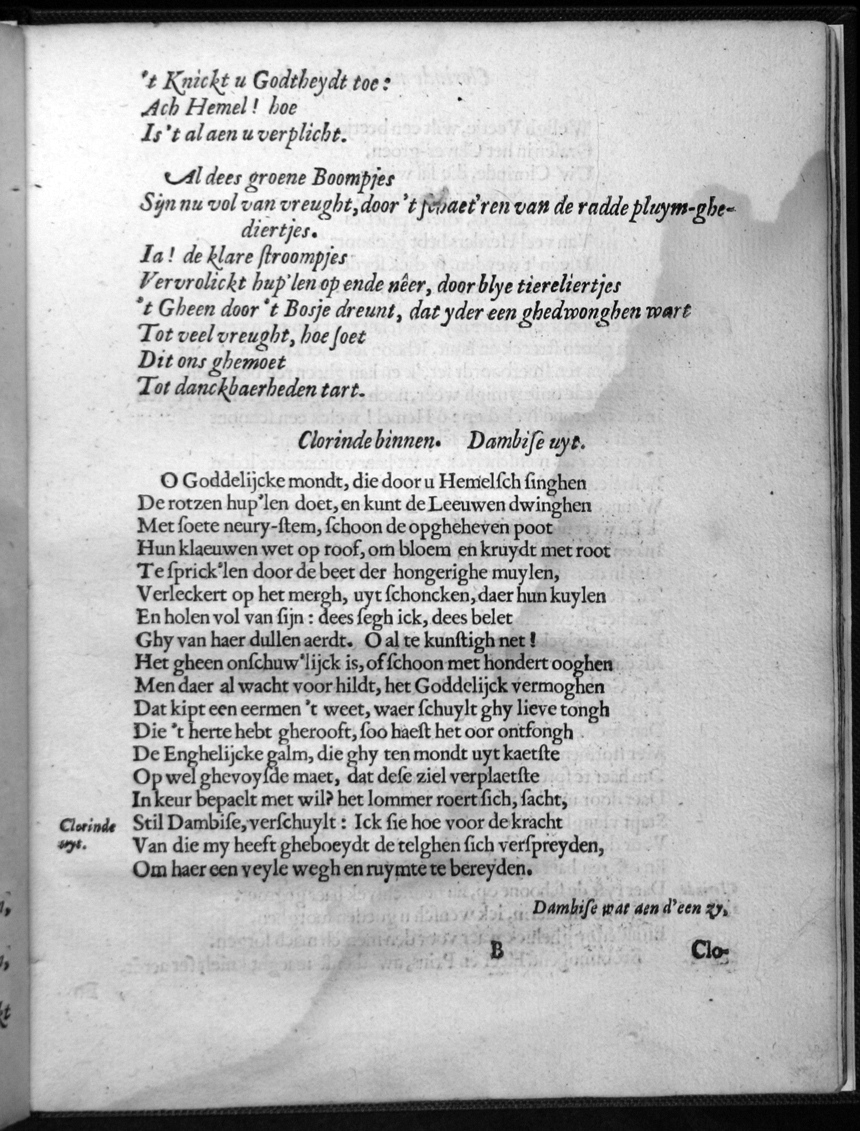 't Knickt u Godtheydt toe:
Ach Hemel! hoe
Is't al aen u verplicht.
Al dees groene Boompjes
Sijn nu vol van vreught, door 't ſchaet'ren van de radde pluym-ghe-
diertjes.
Ia! de klare ſtroompjes
Vervrolickt hup'len op ende nêer, door blye tiereliertjes
't Gheen door 't Bosje dreunt, dat yder een ghedwonghen wart
Tot veel vreught, hoe ſoet
Dit ons ghemoet
Tot danckbaerheden tart.
Clorinde binnen. Dambiſe uyt.
O Goddelijcke mondt, die door u Hemelſch ſinghen
De rotzen hup'len doet, en kunt de Leeuwen dwinghen
Met ſoete neury-ſtem, ſchoon de opgheheven poot
Hun klaeuwen wet op roof, om bloem en kruydt met root
Te ſprick'len door de beet der hongerighe muylen,
Verleckert op het mergh, uyt ſchoncken, daer hun kuylen
En holen vol van ſijn: dees ſegh ick, dees belet
Ghy van haer dullen aerdt. O al te kunſtigh net!
Het gheen onſchuw'lijck is, of ſchoon met hondert ooghen
Men daer al wacht voor hildt, het Goddelijck vermoghen
Dat kipt een eermen 't weet, waer ſchuylt ghy lieve tongh
Die 't herte hebt gherooft, ſoo haeſt het oor ontfongh
De Enghelijcke galm, die ghy ten mondt uyt kaetſte
Op wel ghevoyſde maet, dat deſe ziel verplaetſte
In keur bepaelt met wil? het lommer roert ſich, ſacht,
Clorinde uyt.
Stil Dambiſe, verſchuylt: Ick ſie hoe voor de kracht
Van die my heeft gheboeydt de telghen ſich verſpreyden,
Om haer een veyle wegh en ruymte te bereyden.
Dambiſe wat aen d'een zy,
B Clo-